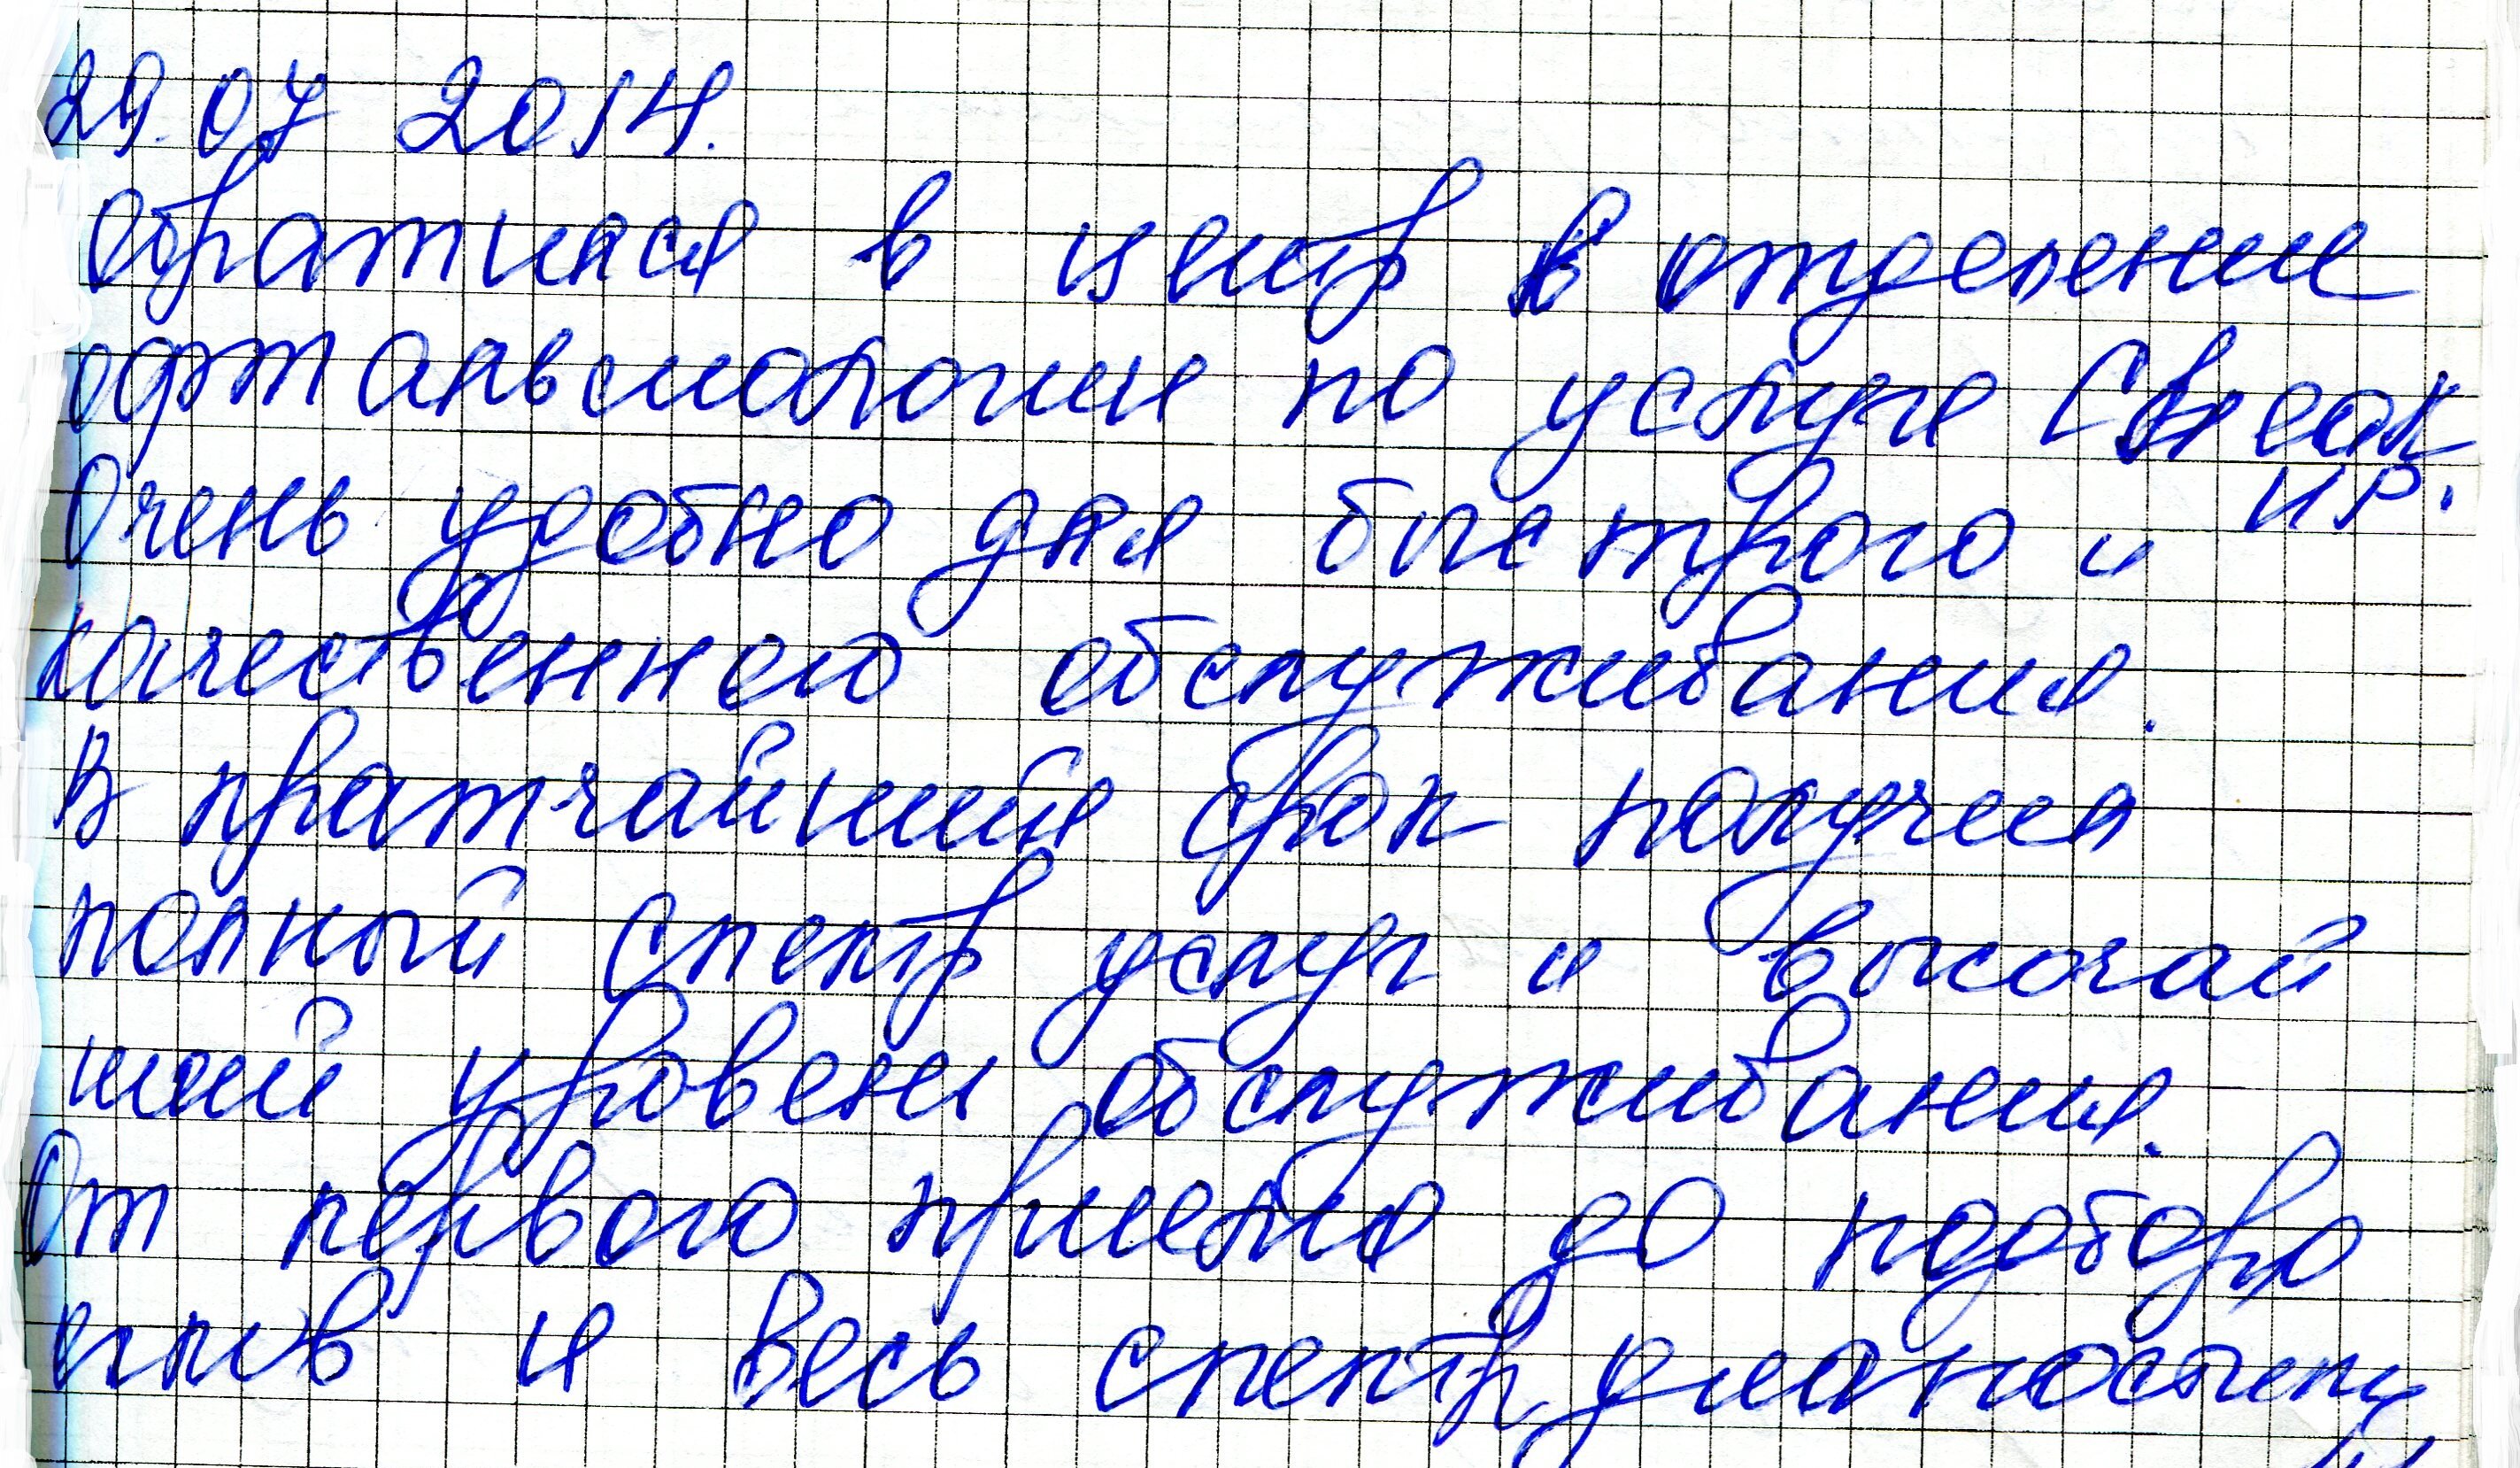 29.07 2014.
Обратился в центр в отделение
офтальмологии по услуге Check
up.
Очень удобно для быстрого и
качественного обслуживания.
В кратчайший срок получил
полный спектр услуг и высочай
ший уровень обслуживания.
От первого приема до подбора
и весь спектр диагностики